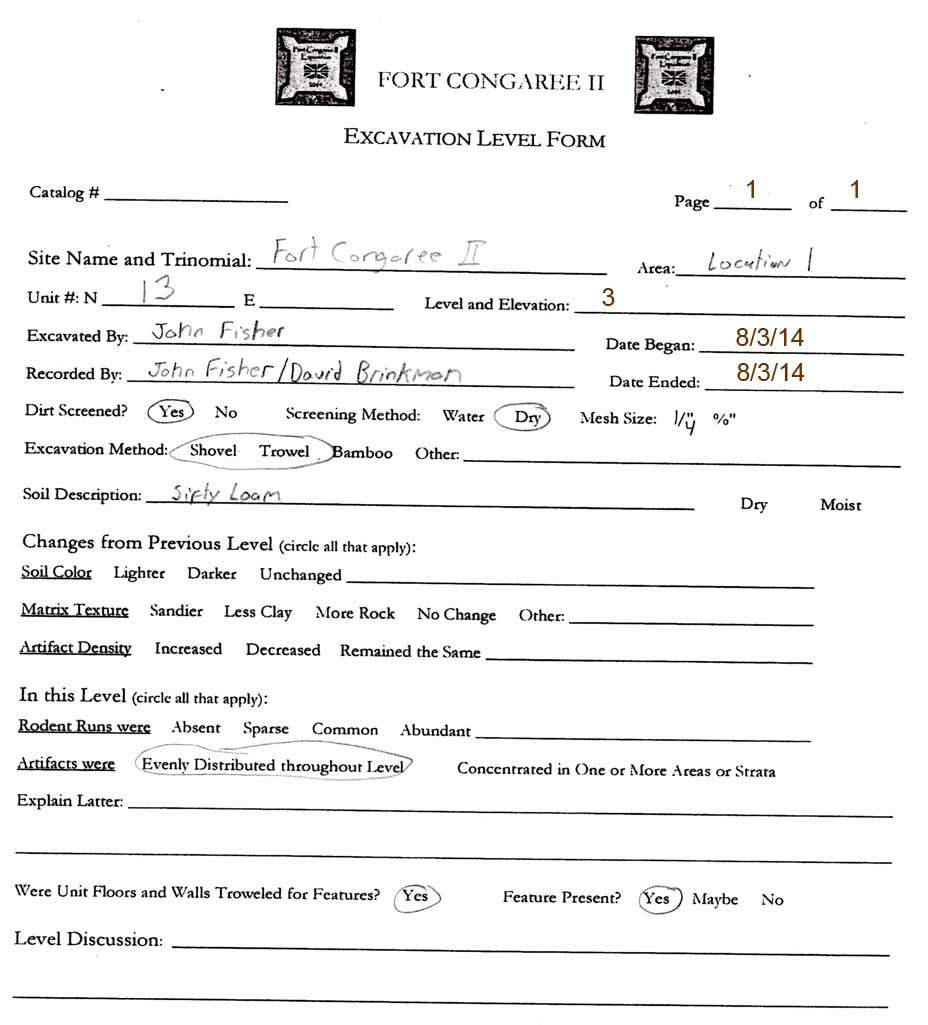 Fort Congaree II
Expedition
2014
FORT CONGAREE II
Fort Congaree II
Expedition
2014
EXCAVATION LEVEL FORM
Catalog #
Page 1 of 1
Site Name and Trinomial: Fort Congaree II Area: Location 1
Unit #: N 13 E Level and Elevation: 3
Excavated By: John Fisher Date Began: 8/3/14
Recorded By: John Fisher/David Brinkman Date Ended: 8/3/14
Dirt Screened? Yes No Screening Method: Water Dry Mesh Size: 1/4" %"
Excavation Method: Shovel Trowel Bamboo Other:
Soil Description: Silty Loam Dry Moist
Changes from Previous Level (circle all that apply):
Soil Color Lighter Darker Unchanged
Matrix Texture Sandier Less Clay More Rock No Change Other:
Artifact Density Increased Decreased Remained the Same
In this Level (circle all that apply):
Rodent Runs were Absent Sparse Common Abundant
Artifacts were Evenly Distributed throughout Level Concentrated in One or More Areas or Strata
Explain Latter:
Were Unit Floors and Walls Troweled for Features? Yes Feature Present? Yes Maybe No
Level Discussion: